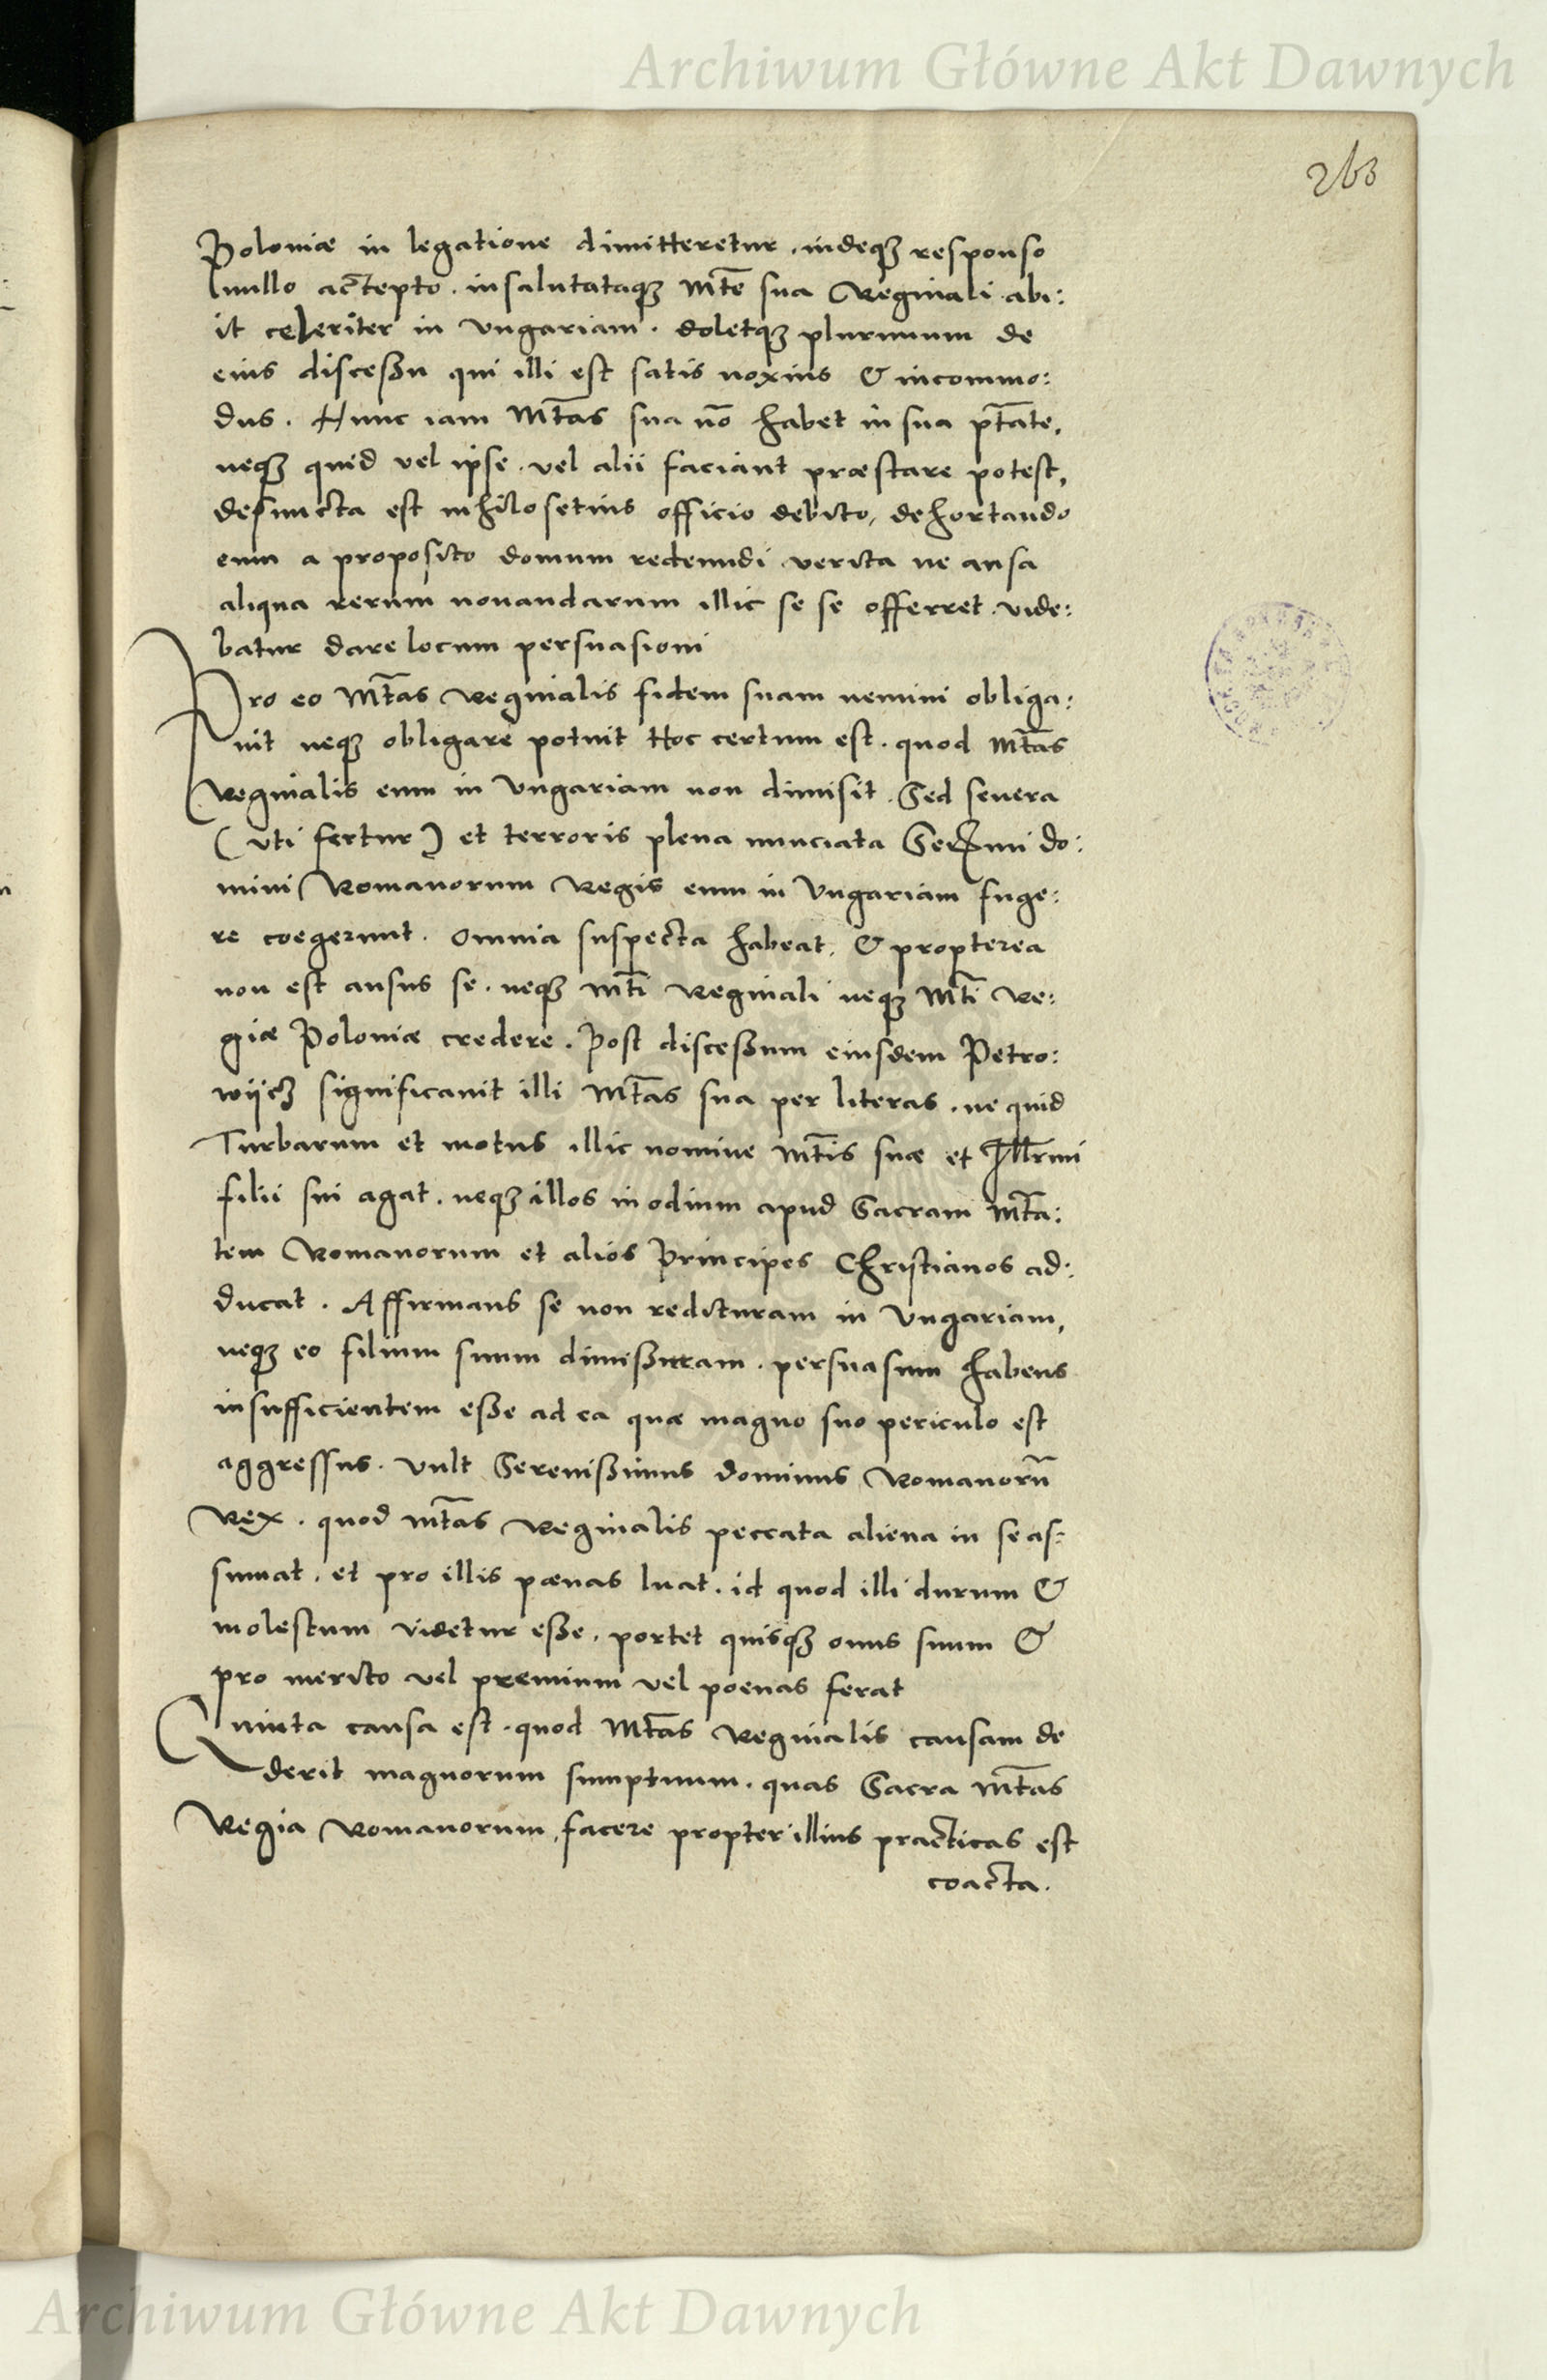 Archiwum Główne Akt Dawnych
263
Poloniæ in legatione dimitteretur. indeqꝫ responso
nullo acceptо. insalutataqꝫ Mte͞ sua Reginali abi:
it celeriter in Vngariam. doletqꝫ plurimum de
eius discessu qui illi est satis noxius & incommo:
dus. Hunc iam Mta͞s sua no͞ habet in sua pt͞ate,
neqꝫ quid vel ipse. vel alii faciant præstare potest,
defuncta est nihilosetius officio debito, dehortando
eum a proposito domum redeundi verita ne ansa
aliqua rerum nouandarum illic se se offerret. vide:
batur dare locum persuasioni
Pro eo Mta͞s Reginalis fidem suam nemini obliga:
uit neqꝫ obligare potuit Hoc certum est. quod Mta͞s
Reginalis eum in Vngariam non dimisit. Sed seuera
(vti fertur) et terroris plena nunciata Serᷤmi do:
mini Romanorum Regis eum in Vngariam fuge:
re coegerunt. omnia suspecta habeat. & propterea
non est ausus se. neqꝫ Mt͞i Reginali neqꝫ Mt͞i Re:
giæ Poloniæ credere. Post discessum eiusdem Petro:
wijcꝫ significauit illi Mta͞s sua per literas. ne quid
Turbarum et motus illic nomine Mt͞is suæ et Illr͞mi
filii sui agat. neqꝫ illos in odium apud Sacram Mt͞a:
tem Romanorum et alios Principes Christianos ad:
ducat. Affirmans se non redituram in Vngariam,
neqꝫ eo filium suum dimissuram. persuasum habens
insufficientem esse ad ea quæ magno suo periculo est
aggressus. Vult Serenissimus dominus Romanoru͞
Rex. quod Mta͞s Reginalis peccata aliena in se as:
sumat. et pro illis pœnas luat. id quod illi durum &
molestum videtur esse. portet quisqꝫ onus suum &
pro merito vel premium vel poenas ferat
Quinta causa est. quod Mta͞s Reginalis causam de
derit magnorum sumptuum. quas Sacra Mta͞s
Regia Romanorum, facere propter illius practicas est
coacta.
Archiwum Główne Akt Dawnych